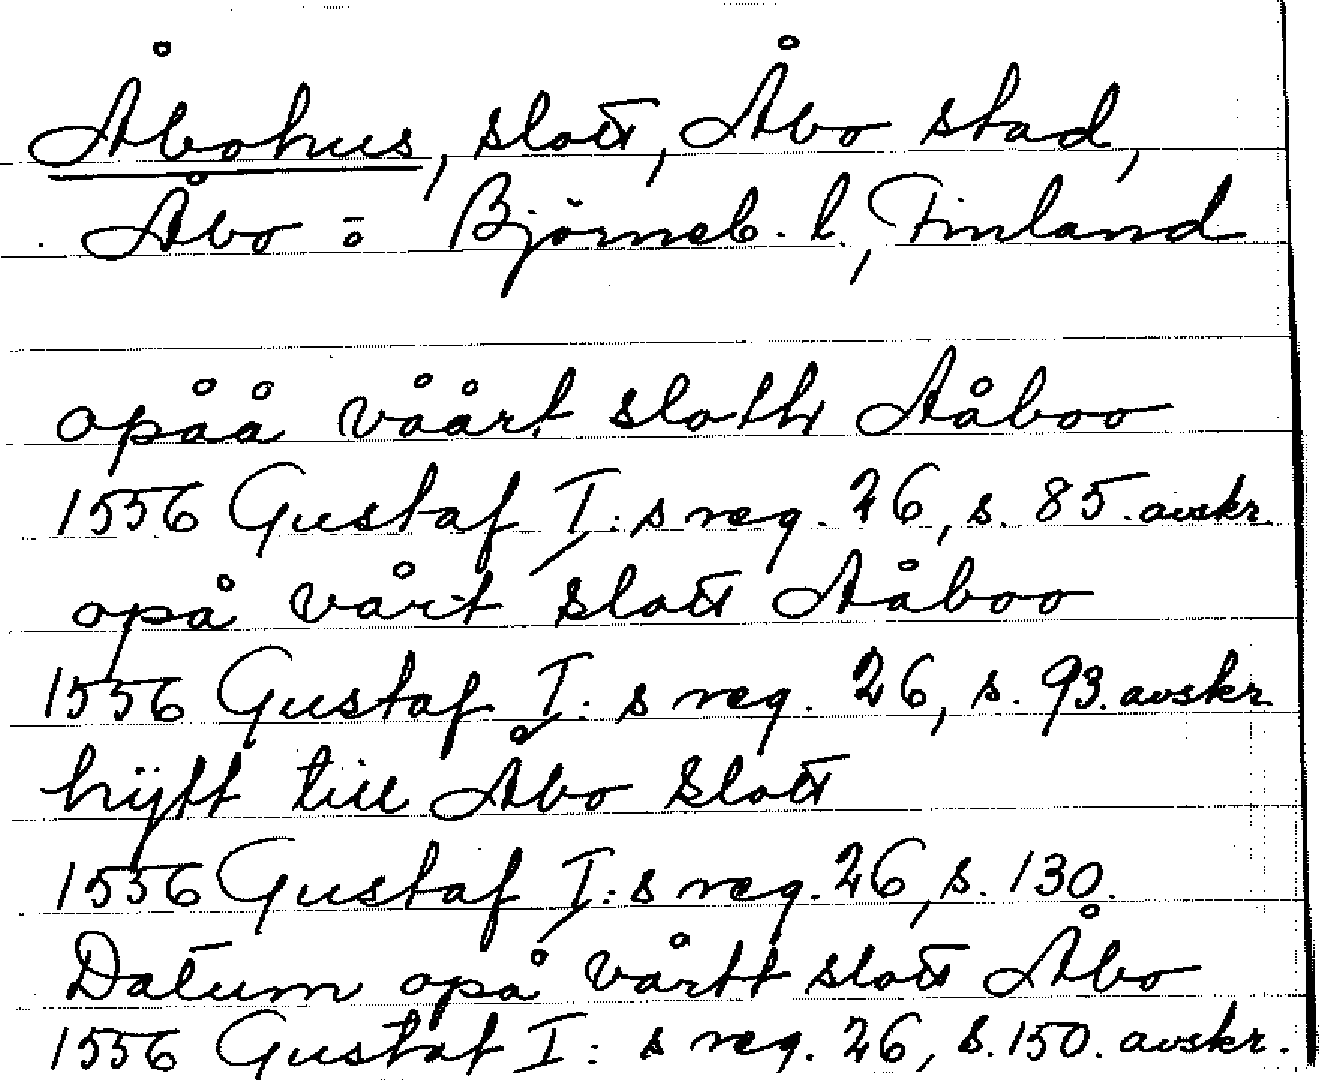 Åbohus, slott, Åbo stad,
Åbo o Björneb. l., Finland
opåå våårt sloth Aåboo
1556 Gustaf I:s reg. 26, s. 85. avskr.
opå vårt slott Aåboo
1556 Gustaf I:s reg. 26, s. 93. avskr.
till Åbo Slott
1556 Gustaf I:s reg. 26, s. 130.
Datum opå vårtt slott Åbo
1556 Gustaf I:s reg. 26, s. 150. avskr.